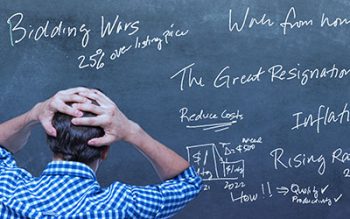 Bidding Wars
25% over listing price
Work from hom
The Great Resignation
Reduce Costs
Inflati
Rising Ra
$1
$1/4
21
2022
How!!
Quality
Productivity